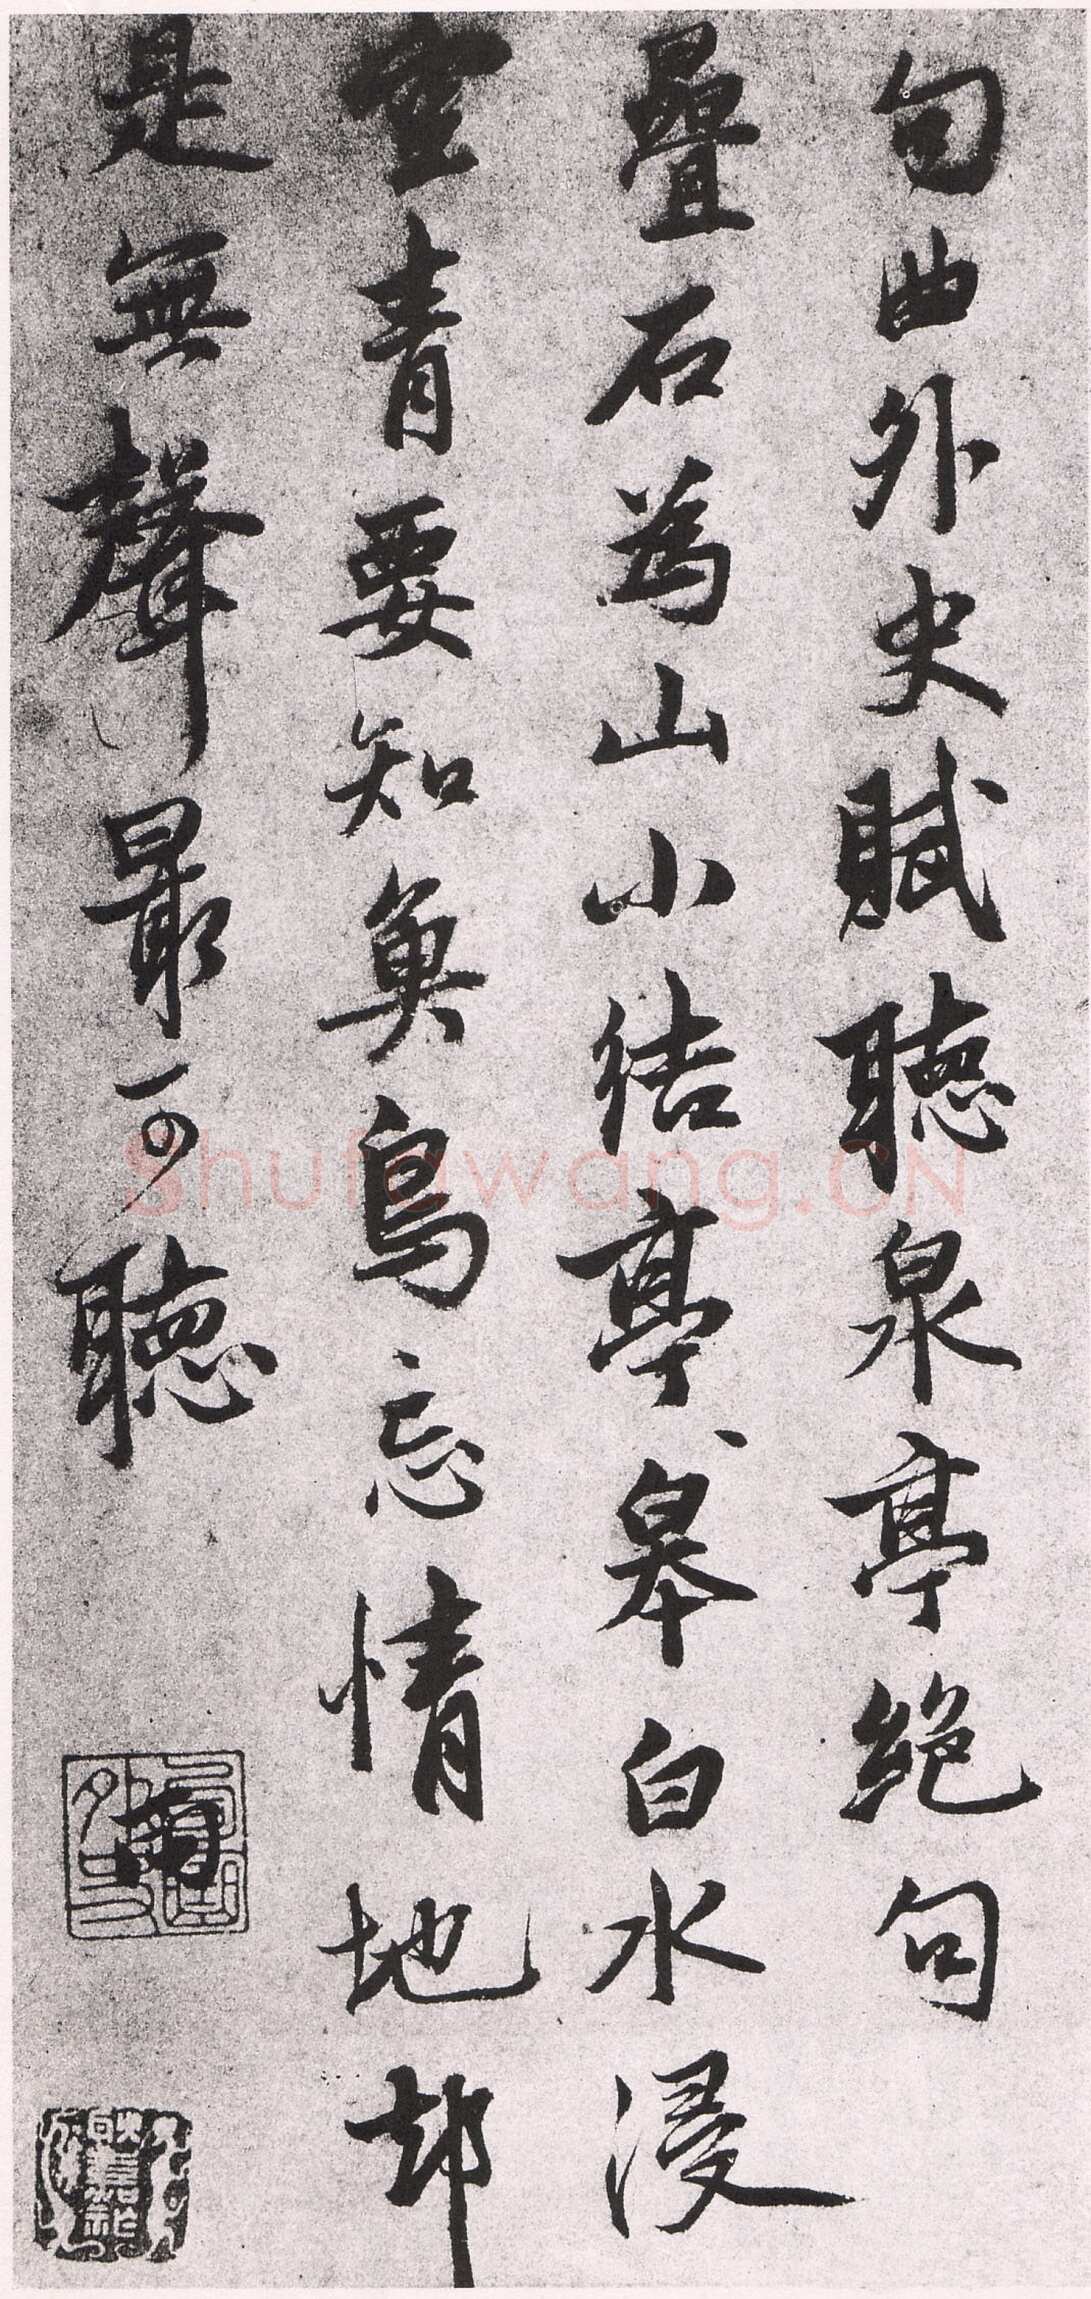 句曲外史賦聽泉亭絕句
疊石為山小結亭皋白水浸
空青要知魚鳥忘情地却
是無聲最可聽
雨
句曲外史
Shufawang.CN